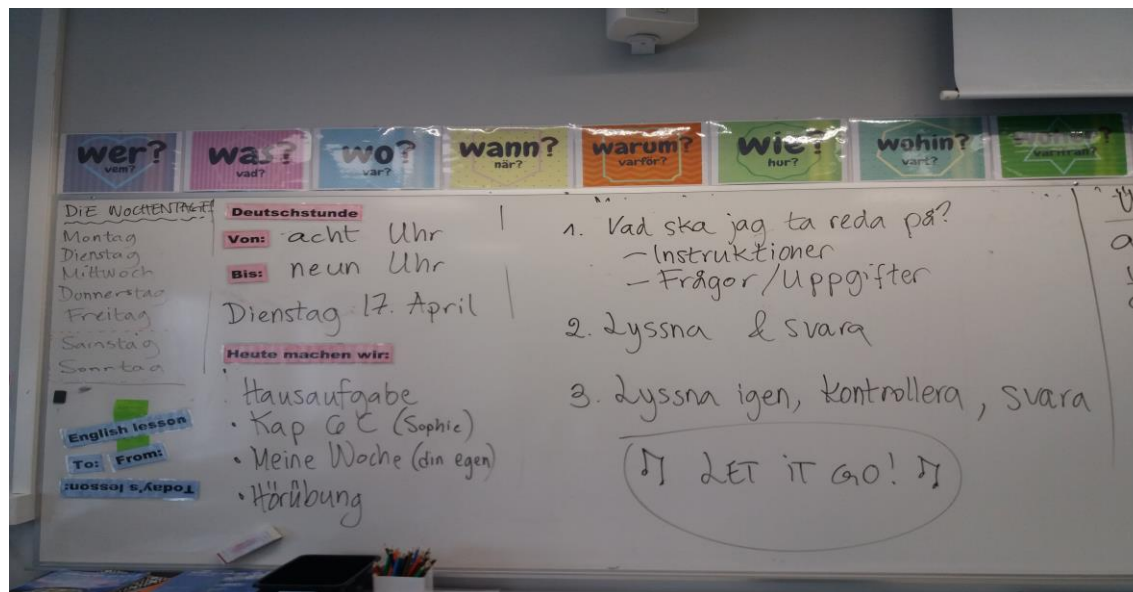 wer?
vem?
was?
vad?
wo?
var?
wann?
när?
warum?
varför?
wie?
hur?
wohin?
vart?
varifrån?
DiE WOCHENTAGE
Montag
Dienstag
Mittwoch
Donnerstag
Freitag
Samstag
Sonntag
English lesson
To: From:
Today's lesson:
Deutschstunde
Von: acht Uhr
Bis: neun Uhr
Dienstag 17. April
Heute machen wir:
· Hausaufgabe
· Kap 6 C (Sophie)
· Meine Woche (din egen)
· Hörübung
1. Vad ska jag ta reda på?
- Instruktioner
- Frågor/Uppgifter
2. Lyssna & svara
3. Lyssna igen, kontrollera, svara
♫ LET iT GO! ♫